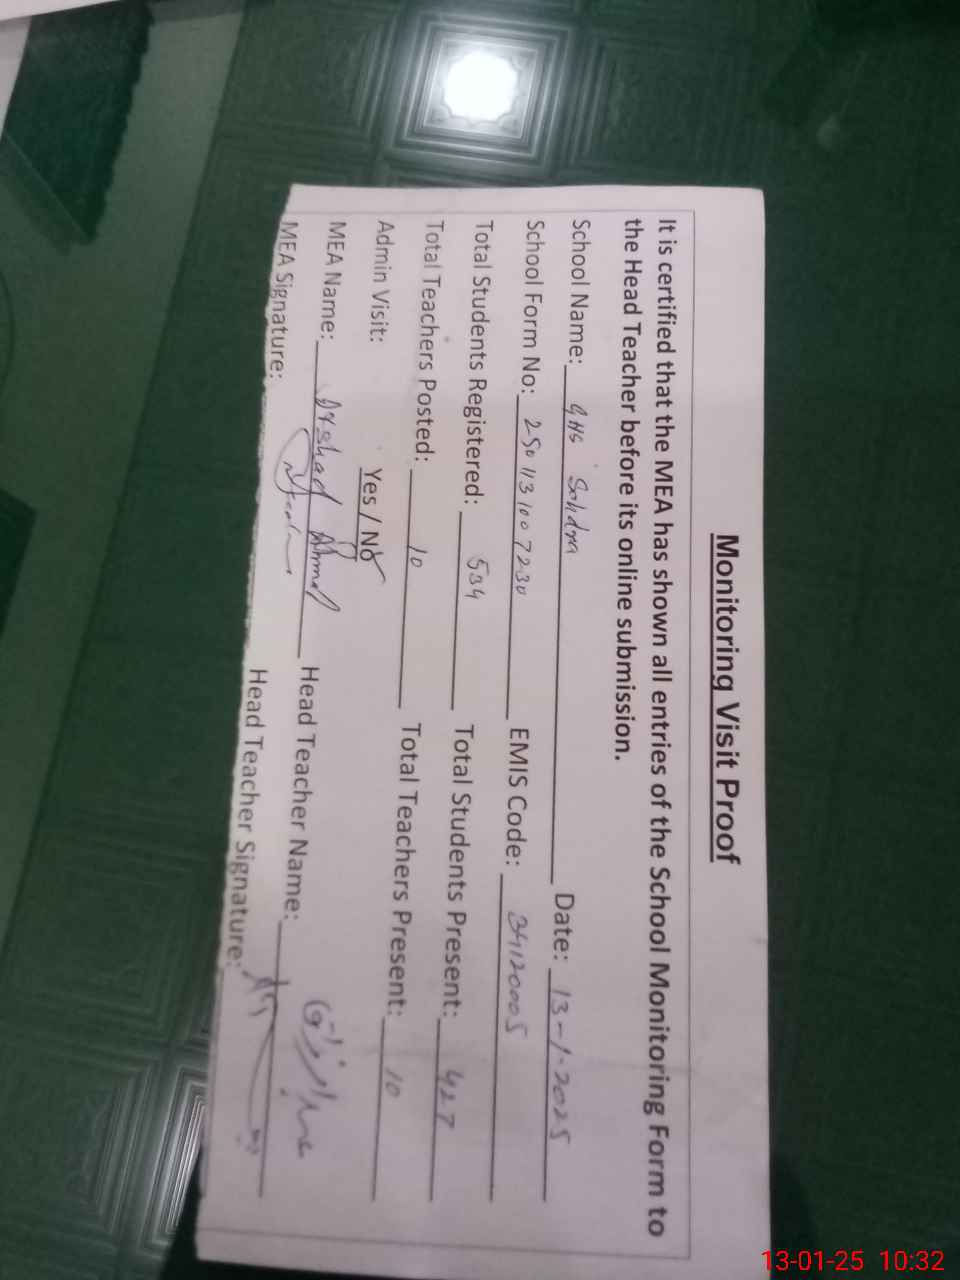 Monitoring Visit Proof
It is certified that the MEA has shown all entries of the School Monitoring Form to
the Head Teacher before its online submission.
School Name: GHS Sohdra Date: 13-1-2025
School Form No: 2501131007230 EMIS Code: 34120005
Total Students Registered: 534 Total Students Present: 427
Total Teachers Posted: 10 Total Teachers Present: 10
Admin Visit: Yes / No
MEA Name: Irshad Ahmad Head Teacher Name:
MEA Signature: Head Teacher Signature:
13-01-25 10:32